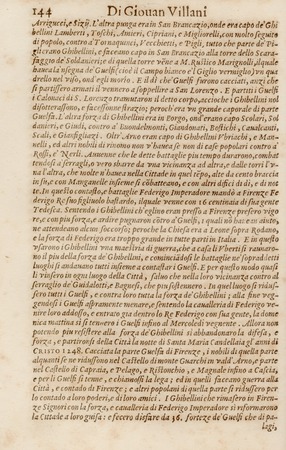 144 Di Giouan Villani
Arrigucci, e Sizij. L'altra punga era in San Brancazio, onde era capo de' Ghi
bellini Lamberti, Toschi, Amieri, Cipriani, e Migliorelli, con molto seguito
di popolo, contra a Tornaquinci, Vecchietti, e Pigli, tutto che parte de' Pi-
sterano Ghibellini, e faceano capo in San Brancazio alla torre dello Scara-
faggio de Soldanieri; di quella torre venne a M. Rustico Marignolli, il quale
hauea la insegna de' Guelfi; cioè il Campo bianco e'l Giglio vermiglio, vn qua
drello nel viso, ond' egli morio. E il dì che Guelfi furono cacciati, anzi che
si partissero armati il vennero a soppellire a San Lorenzo. E partiti i Guelfi
i Calonaci di S. Lorenzo tramutarono il detto corpo, acciochè i Ghibellini nol
disotterrassino, e facessinne strazio; peroch'era vn grande caporale di parte
Guelfa. L'altra forza di Ghibellini era in Borgo, ond'erano capo Scolari, Sol
danieri, e Guidi, contro a' Buondelmonti, Giandonati, Bostichi, Caualcanti,
Scali, e Gianfigliazzi. Oltr'Arno eran capo di Ghibellini Vbriachi, e Man-
nelli, ed altri nobili di rinomo non v'hauea se non di case popolari contro a'
Rossi, e' Nerli. Auuenne che le dette battaglie più tempo durarono, combat
tendosi a serragli, o vero sbarre da vna vicinanza ad altra, e dalle torri l'v-
na l'altra, che molte n'hauea nella Cittade in quel tẽpo, alte da cento braccia
in sù, e con Manganelle insieme si cõbatteano, e con altri dificii di dì, e di not
te. In questo contasto, e battaglie Federigo Imperadore mandò a Firenze Fe-
derigo Re suo figliuolo bastardo, il quale venne con 16 centinaia di sua gente
Tedesca. Sentendo i Ghibellini ch'eglino eran presso a Firenze presero vigo
re, e con più forza, e ardire pugnarono cõtro a' Guelfi, i quali nõ haueano aiuto,
ne attendeano alcun soccorso; peroche la Chiesa era a Leone sopra Rodano,
e la forza di Federigo era troppo grande in tutte parti in Italia. E in questo
vsarono i Ghibellini vna maestria di guerra, che a casa li Vberti si raunaro-
no il più della forza de' Ghibellini, e cominciãdosi le battaglie ne' sopradetti
luoghi si andauano tutti insieme a contastare i Guelfi. E per questo modo quasi
li vinsero in ogni luogo della Città, saluo che nella loro vicinanza contro al
serraglio de' Guidalotti, e Bagnesi, che più sostennero. In quel luogo si ridus-
sero tutti i Guelfi, e contra loro tutta la forza de' Ghibellini; alla fine veg-
gendosi i Guelfi aspramente menare, e sentendo la caualleria di Federigo ve-
nire loro addosso, e entrato già dentro lo Re Federigo con sua gente, la dome
nica mattina si si tennero i Guelfi insino al Mercoledì vegnente. Allora non
potendo più resistere alla forza de' Ghibellini si abbandonaro la difesa, e
forza, e partironsi della Città la notte di Santa Maria Candellaia gl'anni di
CRISTO 1248. Cacciata la parte Guelfa di Firenze, i nobili di quella parte
alquanti se ne ridussono nel Castello di monte Guarchi in vald'Arno, e parte
nel Castello di Capraia, e Pelago, e Ristonchio, e Magnale insino a Cascia,
e per li Guelfi si tenne, e chiamossi la lega; ed in quelli faceano guerra alla
Città, e contado di Firenze; e altri popolani di quella parte si ridussero per
lo contado a loro poderi, e di loro amici. I Ghibellini che rimasero in Firen-
ze Signori con la forza, e caualleria di Federigo Imperadore si riformarono
la Cittade a loro guisa; e fecero disfare da 36. fortezze de' Guelfi che di pa-
lagi,